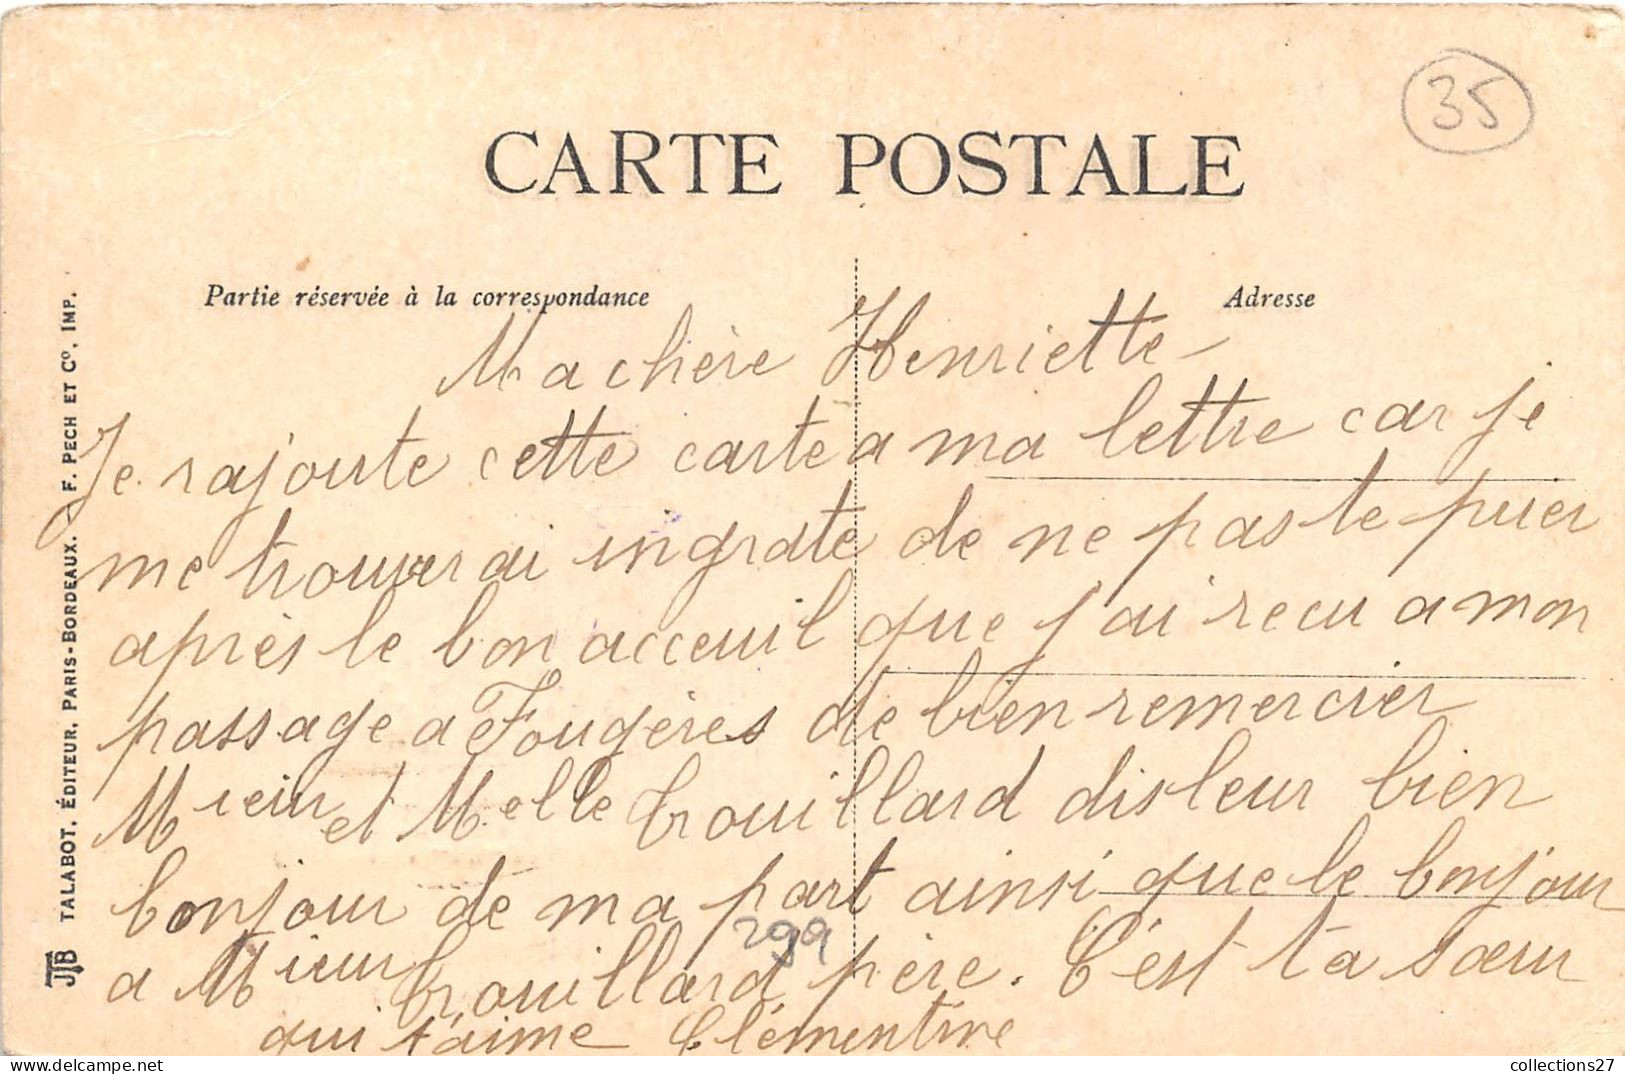 35
CARTE POSTALE
Partie réservée à la correspondance
Adresse
Ma chère Henriette
Je rajoute cette carte a ma lettre car je
me trouverai ingrate de ne pas te prier
après le bon acceuil que j'ai recu a mon
passage a Fougères de bien remercier
Mrieur et Melle Trouillard dis leur bien
bonjour de ma part ainsi que le bonjour
299
a Mrieur Trouillard père. C'est ta sœur
qui t'aime Clémentine
JTB TALABOT, ÉDITEUR, PARIS-BORDEAUX. F. PECH ET Cº, IMP.
collections27